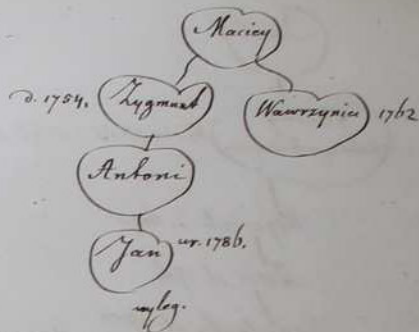 Maciey
d. 1754. Zygmunt
Wawrzyniec 1762
Antoni
Jan ur. 1786.
wyleg.